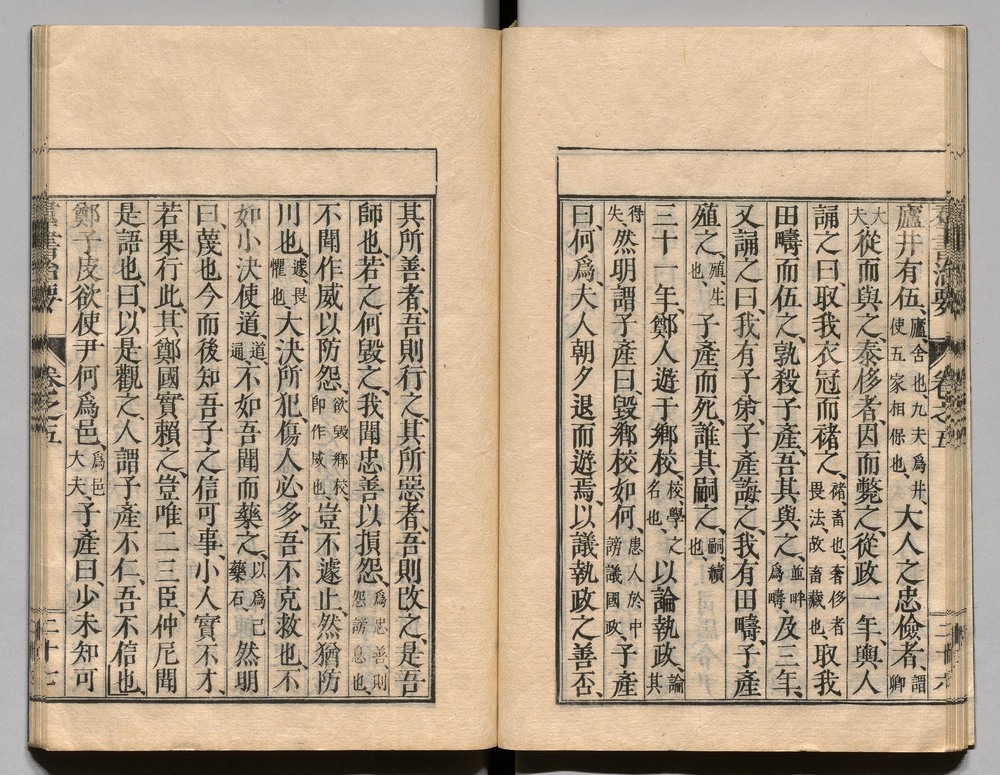 廬井有伍、廬、舍也、九夫爲井、使五家相保也、大人之忠儉者、謂卿
大夫從而與之、泰侈者、因而斃之、從政一年、輿人
誦之曰、取我衣冠而褚之、褚、畜也、奢侈者畏法故畜藏也、取我
田疇而伍之、孰殺子產、吾其與之、並畔爲疇、及三年、
又誦之曰、我有子弟、子產誨之、我有田疇、子產
殖之、殖、生也、子產而死、誰其嗣之、嗣、續也、
三十一年、鄭人遊于鄉校、校、學之名也、以論執政、論其
得失、然明謂子產曰、毀鄉校如何、患人於中謗議國政、子產
曰、何爲、夫人朝夕退而遊焉、以議執政之善否、
群書治要 卷之五 二十六
其所善者、吾則行之、其所惡者、吾則改之、是吾
師也、若之何毀之、我聞忠善以損怨、爲忠善則怨謗息也、
不聞作威以防怨、欲毀鄉校、卽作威也、豈不遽止、然猶防
川也、遽、畏懼也、大決所犯、傷人必多、吾不克救也、不
如小決使道、道、通、不如吾聞而藥之、以爲己藥石、然明
曰、蔑也今而後知吾子之信可事、小人實不才、
若果行此、其鄭國實賴之、豈唯二三臣、仲尼聞
是語也、曰、以是觀之、人謂子產不仁、吾不信也、
鄭子皮欲使尹何爲邑、爲邑大夫、子產曰、少、未知可
群書治要 卷之五 二十七